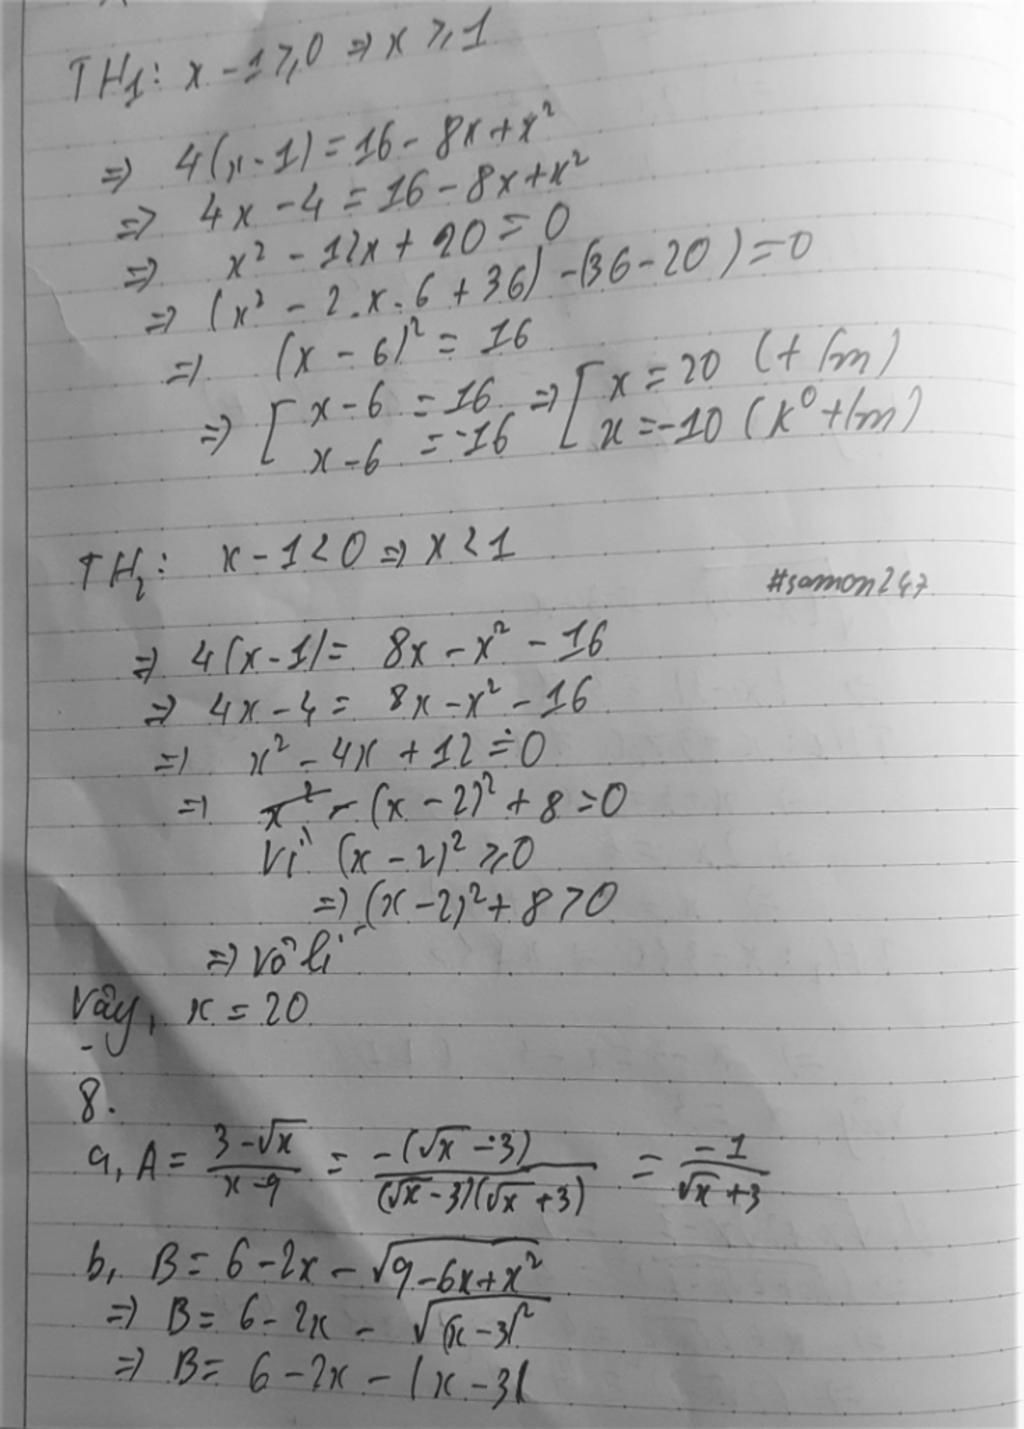 TH₁: x - 1 ≥ 0 => x ≥ 1
=> 4(x - 1) = 16 - 8x + x²
=> 4x - 4 = 16 - 8x + x²
=> x² - 12x + 20 = 0
=> (x² - 2.x.6 + 36) - (36 - 20) = 0
=> (x - 6)² = 16
=> [ x - 6 = 16 => [ x = 20 (t/m)
x - 6 = -16 x = -10 (k⁰ t/m)
TH₂: x - 1 < 0 => x < 1
#samon247
=> 4(x - 1) = 8x - x² - 16
=> 4x - 4 = 8x - x² - 16
=> x² - 4x + 12 = 0
=> (x - 2)² + 8 = 0
Vì (x - 2)² ≥ 0
=> (x - 2)² + 8 > 0
=> Vô lí
Vậy, x = 20
8.
a, A = (3 - √x)/(x - 9) = (-(√x - 3))/((√x - 3)(√x + 3)) = (-1)/(√x + 3)
b, B = 6 - 2x - √(9 - 6x + x²)
=> B = 6 - 2x - √((x - 3)²)
=> B = 6 - 2x - |x - 3|